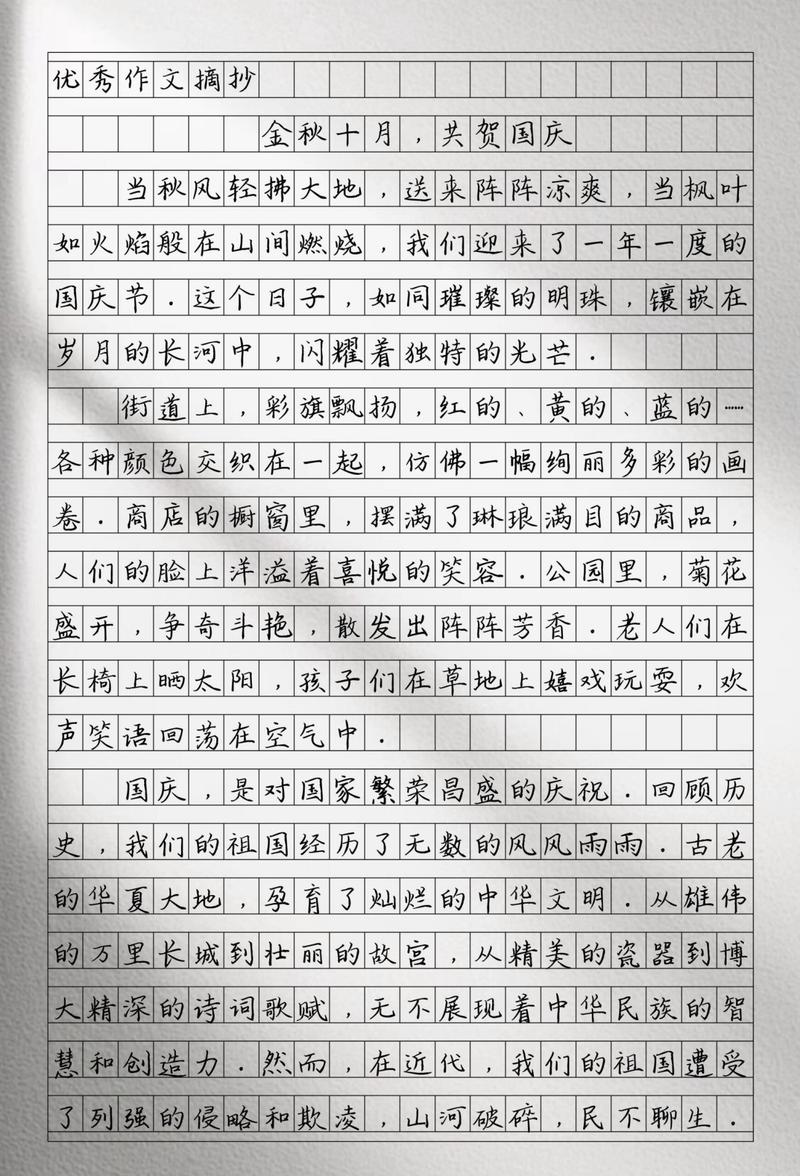 优秀作文摘抄
金秋十月，共贺国庆
当秋风轻拂大地，送来阵阵凉爽，当枫叶
如火焰般在山间燃烧，我们迎来了一年一度的
国庆节．这个日子，如同璀璨的明珠，镶嵌在
岁月的长河中，闪耀着独特的光芒．
街道上，彩旗飘扬，红的、黄的、蓝的……
各种颜色交织在一起，仿佛一幅绚丽多彩的画
卷．商店的橱窗里，摆满了琳琅满目的商品，
人们的脸上洋溢着喜悦的笑容．公园里，菊花
盛开，争奇斗艳，散发出阵阵芳香．老人们在
长椅上晒太阳，孩子们在草地上嬉戏玩耍，欢
声笑语回荡在空气中．
国庆，是对国家繁荣昌盛的庆祝．回顾历
史，我们的祖国经历了无数的风风雨雨．古老
的华夏大地，孕育了灿烂的中华文明．从雄伟
的万里长城到壮丽的故宫，从精美的瓷器到博
大精深的诗词歌赋，无不展现着中华民族的智
慧和创造力．然而，在近代，我们的祖国遭受
了列强的侵略和欺凌，山河破碎，民不聊生．